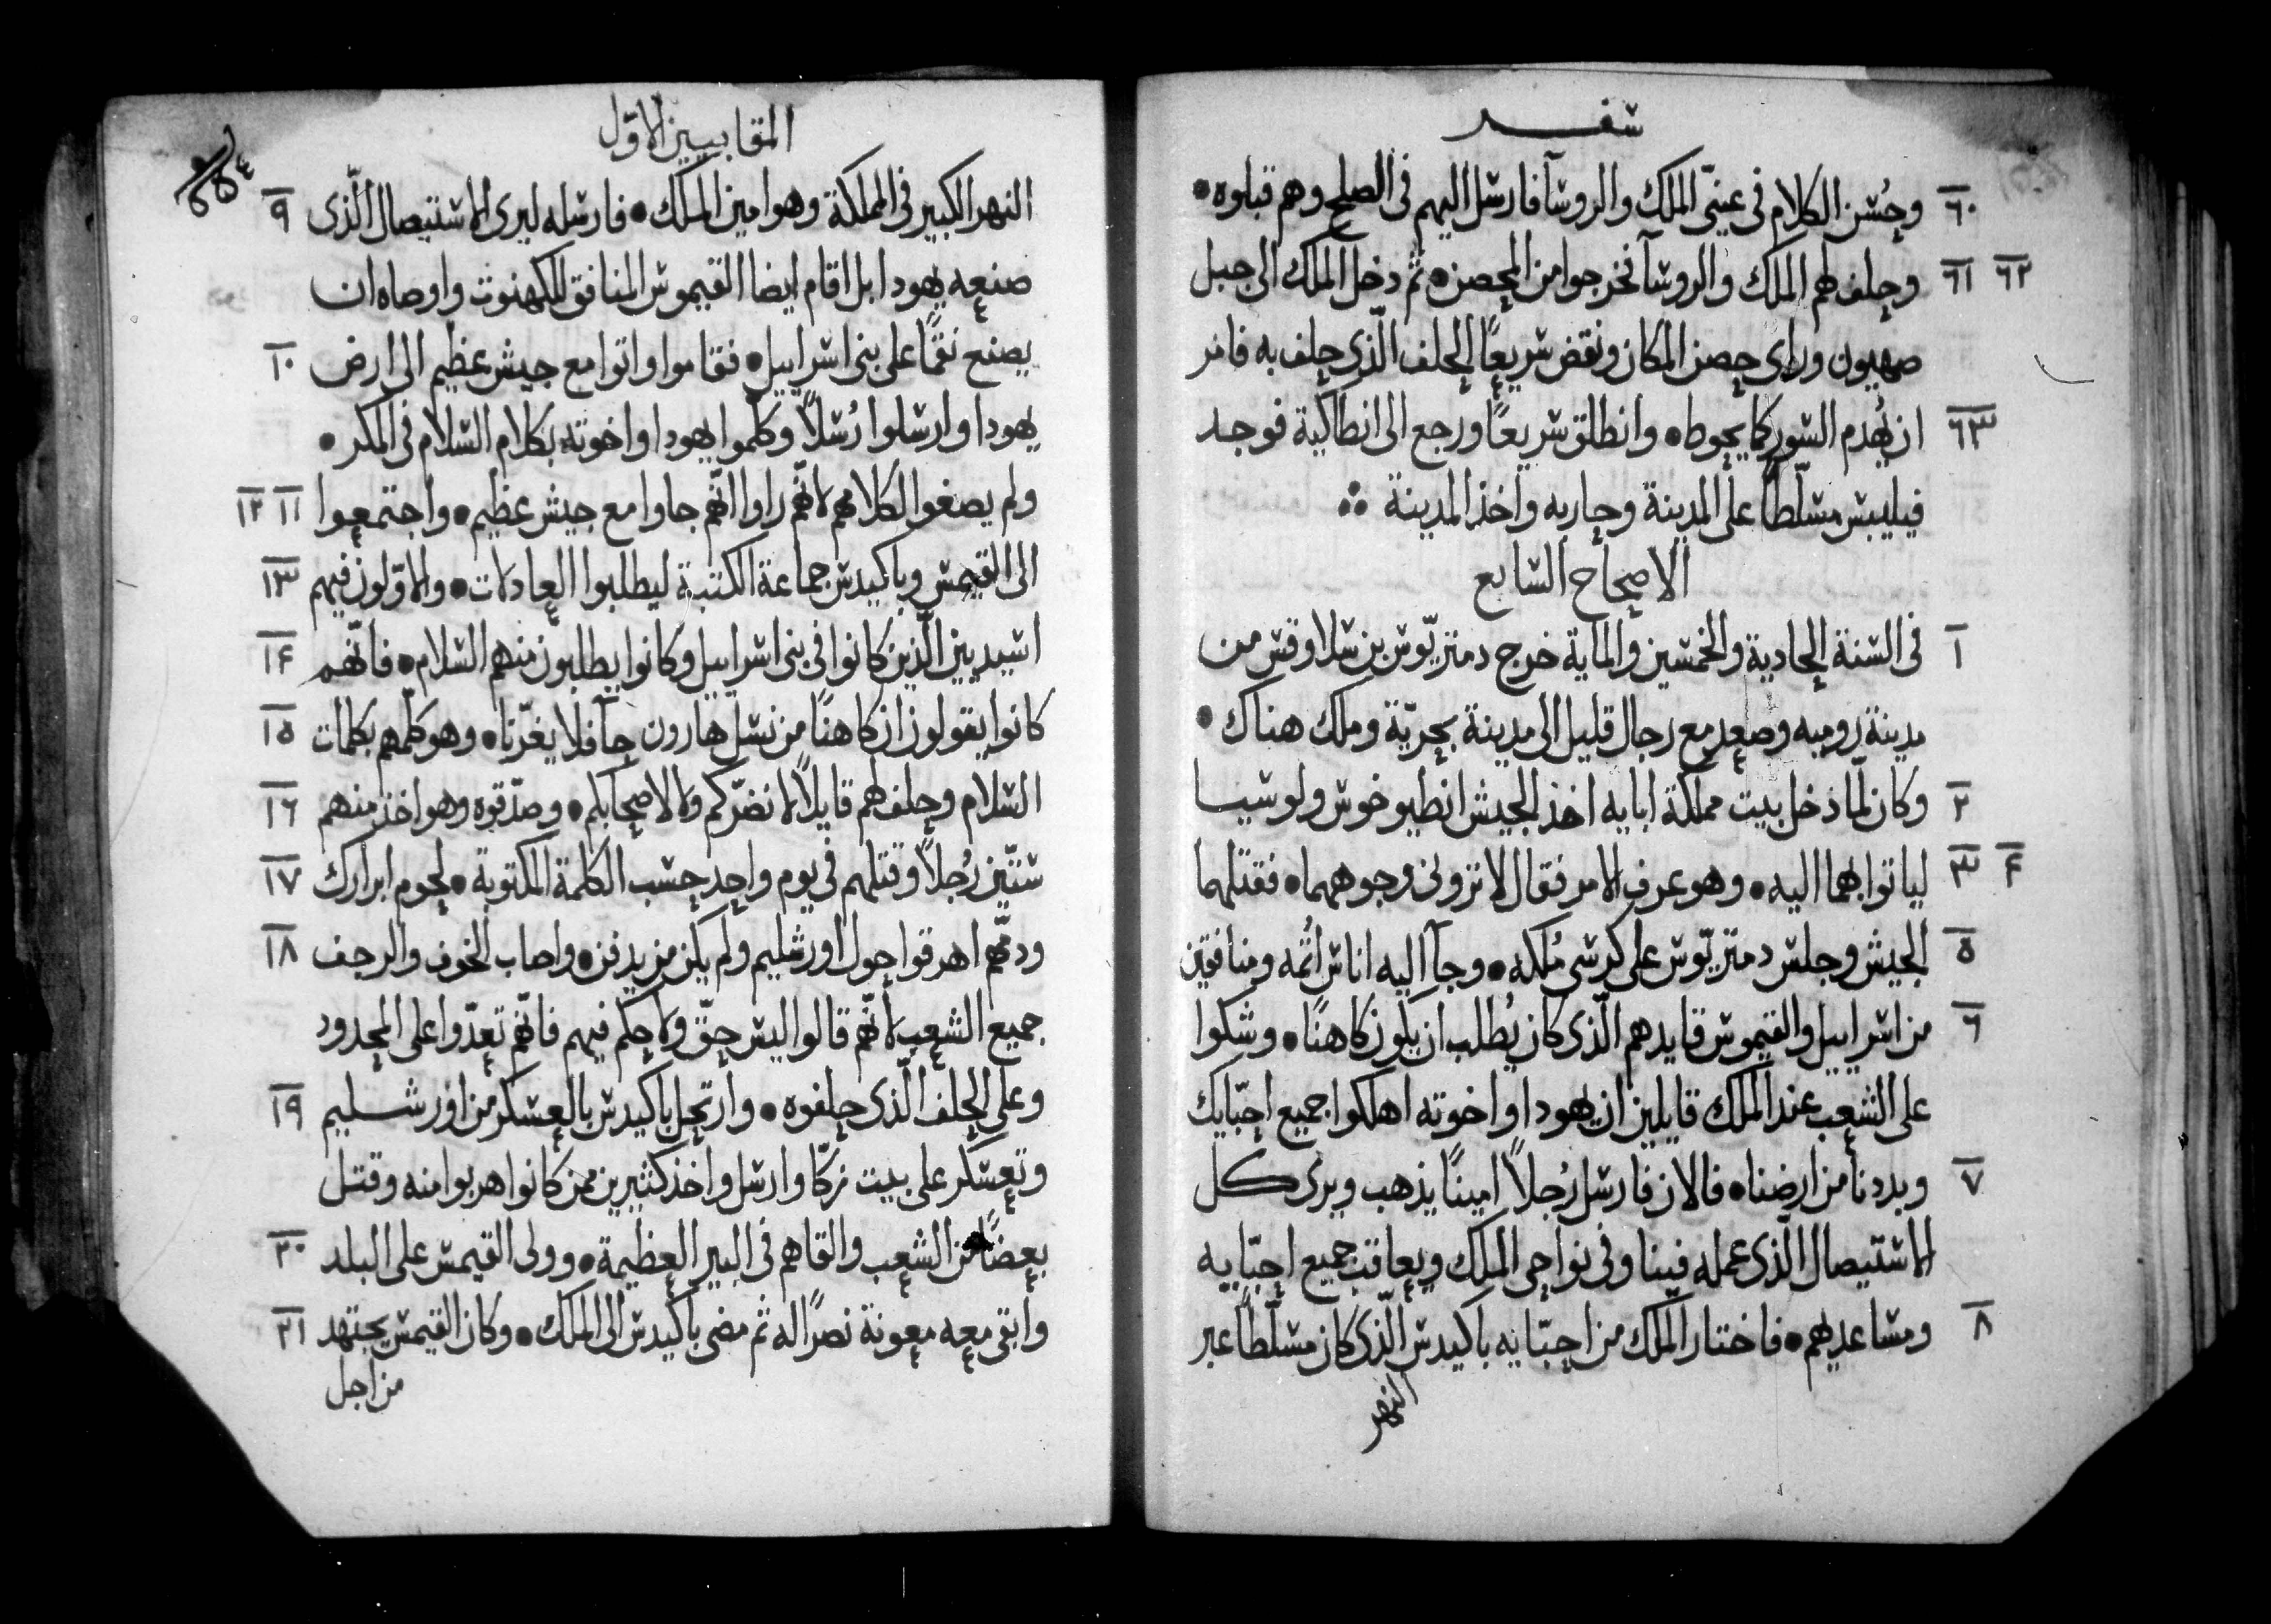 سفر
٦٠ وحسن الكلام فى عينى الملك والروسآ فارسل اليهم فى الصلح وهم قبلوه •
٦١ ٦٢ وحلف لهم الملك والروسآ فخرجوا من الحصن • ثم دخل الملك الى جبل
صهيون وراى حصن المكان ونقض سريعًا الحلف الّذى حلف به فامر
٦٣ ان يُهدم السور كما يحوط • وانطلق سريعًا ورجع الى انطاكية فوجد
فيليبس مسلّطًا على المدينة وحاربه واخذ المدينة ∴
الاصحاح السابع
١ فى السنة الحادية والخمسين والماية خرج دمتريّوس بن سلاوقس من
مدينة روميه وصعد مع رجال قليل الى مدينة بحريّة وملك هناك •
٢ وكان لمّا دخل بيت مملكة ابايه اخذ الجيش انطيوخوس ولوسيا
٣ ٤ لياتوا بهما اليه • وهو عرف الامر فقال لا ترونى وجوههما • فقتلهما
٥ الجيش وجلس دمتريّوس على كرسى مُلكه • وجآ اليه اناس اثمه ومنافقين
٦ من اسراييل والقيموس قايدهم الّذى كان يُطلب ان يكون كاهنًا • وشكوا
على الشعب عند الملك قايلين ان يهودا واخوته اهلكوا جميع احبّايك
٧ وبددنا من ارضنا • فالان فارسل رُجلاً امينًا يذهب ويرى كل
الاستيصال الّذى عمله فينا وفى نواحى الملك ويعاقب جميع احبّايه
٨ ومساعديهم • فاختار الملك من احبّايه باكيدس الّذى كان مسلّطًا عبر
النهر
المقابيين الاوّل
٩ النهر الكبير فى المملكة وهو امين الملك • فارسله ليرى الاستيصال الّذى
صنعه يهودا بل اقام ايضا القيموس المنافق للكهنوت واوصاه ان
١٠ يصنع نقمًا على بنى اسراييل • فقاموا واتوا مع جيش عظيم الى ارض
يهودا وارسلوا رُسلاً وكلّموا يهودا واخوته بكلام السلام فى المكر •
١١ ١٢ ولم يصغوا لكلامهم لانّهم راوا انّهم جاوا مع جيش عظيم • واجتمعوا
١٣ الى القيمس وباكيدس جماعة الكتبة ليطلبوا العادلات • والاوّلون فيهم
١٤ اسيديين الّذين كانوا فى بنى اسراييل وكانوا يطلبون منهم السلام • فانّهم
١٥ كانوا يقولون ان كاهنًا من نسل هارون جآ فلا يغرّنا • وهو كلّمهم بكلمات
١٦ السلام وحلف لهم قايلاً لا نضرّكم ولا لاصحابكم • وصدّقوه وهو اخذ منهم
١٧ ستّين رُجلاً وقتلهم فى يوم واحد حسب الكلمة المكتوبة • لحوم ابرارك
١٨ ودمّهم اهرقوا حول اورشليم ولم يكن من يدفن • واصاب الخوف والرجف
جميع الشعب لانّهم قالوا ليس حقّ ولا حكم فيهم فانّهم تعدّوا على الحدود
١٩ وعلى الحلف الّذى حلفوه • وارتحل باكيدس بالعسكر من اورشليم
وتعسكر على بيت زكّا وارسل واخذ كثيرين ممن كانوا هربوا منه وقتل
٢٠ بعضًا من الشعب والقاهم فى البير العظيمة • وولى القيمس على البلد
٢١ وابقى معه معونة نصرًا له ثم مضى باكيدس الى الملك • وكان القيمس يجتهد
من اجل